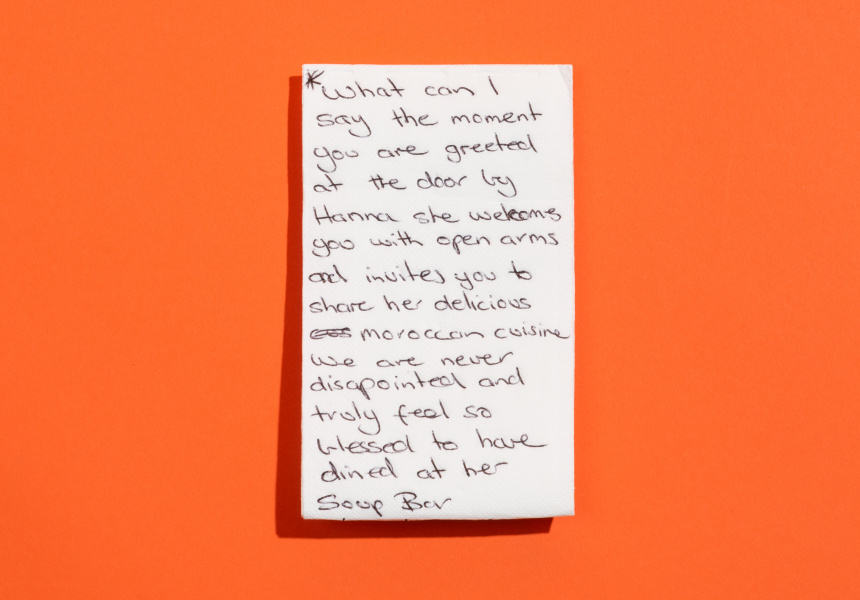 *What can I
say the moment
you are greeted
at the door by
Hanna she welcoms
you with open arms
and invites you to
share her delicious
moroccan cuisine
we are never
disapointed and
truly feel so
blessed to have
dined at her
Soup Bar